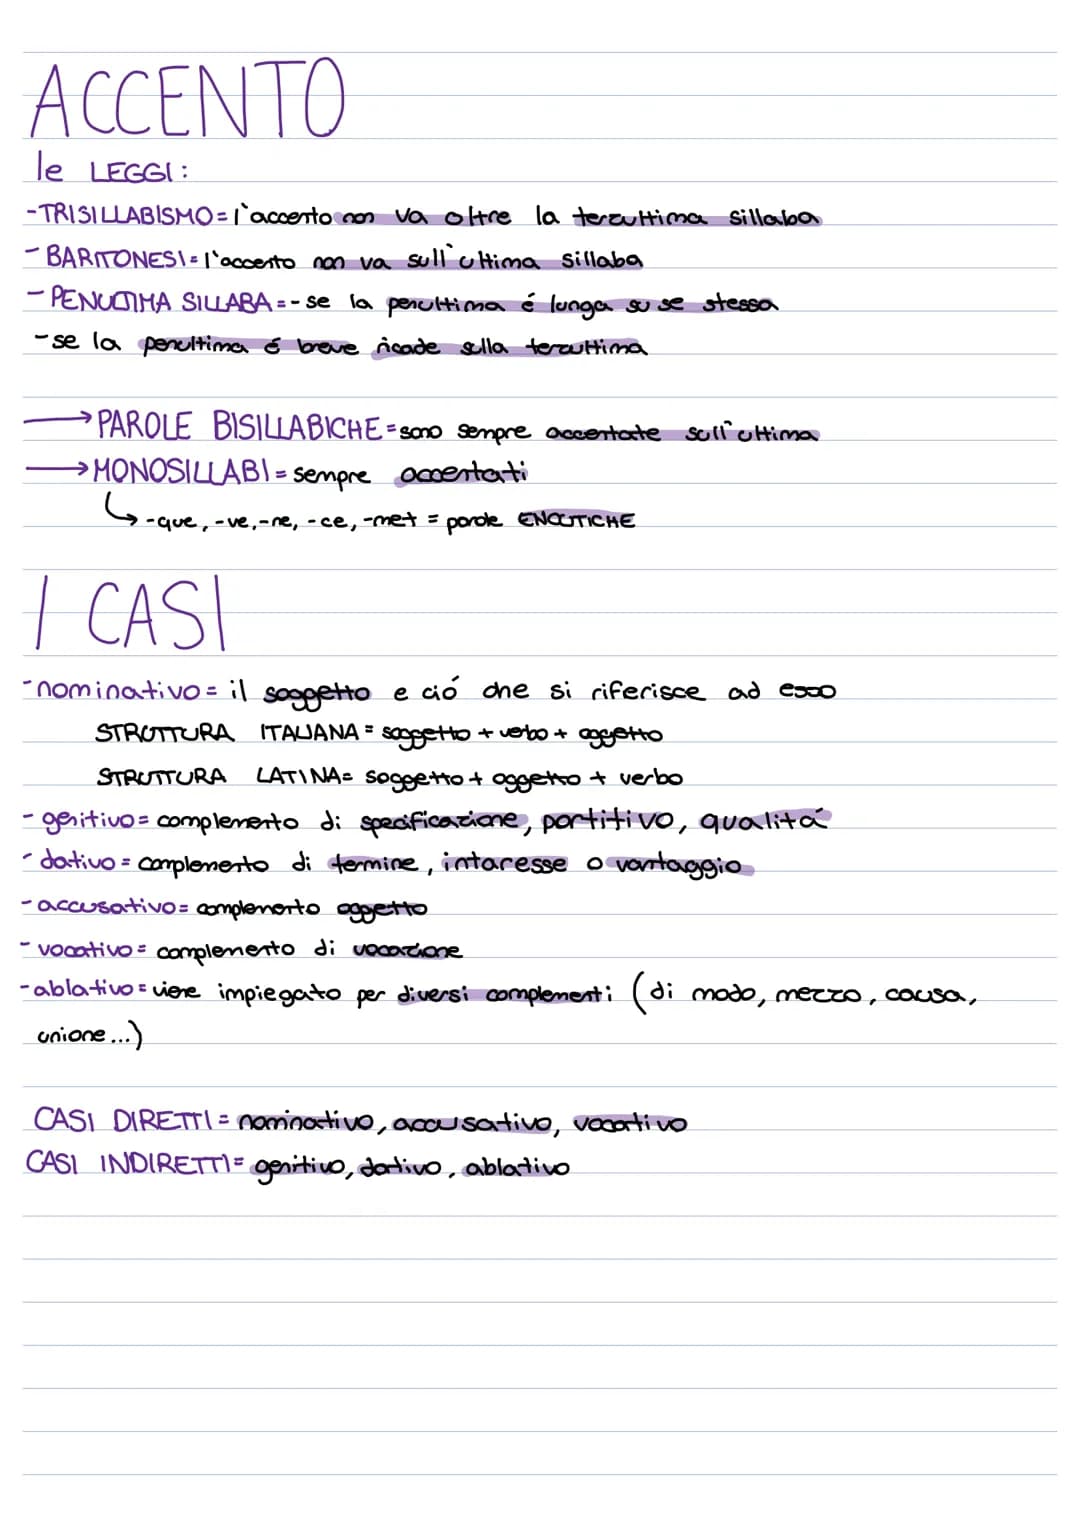 ACCENTO
le LEGGI:
-TRISILLABISMO=l'accento non va oltre la terzultima sillaba
-BARITONESI=l'accento non va sull'ultima sillaba
-PENULTIMA SILLABA=-se la penultima é lunga su se stessa
-se la penultima é breve ricade sulla terzultima
→PAROLE BISILLABICHE=sono sempre accentate sull'ultima
→MONOSILLABI=sempre accentati
↳-que,-ve,-ne,-ce,-met = parole ENCLITICHE
I CASI
-nominativo= il soggetto e ció che si riferisce ad esso
STRUTTURA ITALIANA = soggetto + verbo + oggetto
STRUTTURA LATINA= soggetto + oggetto + verbo
-genitivo= complemento di specificazione, partitivo, qualitá
-dativo= complemento di termine, interesse o vantaggio
-accusativo= complemento oggetto
-vocativo= complemento di vocazione
-ablativo= viene impiegato per diversi complementi (di modo, mezzo, causa,
unione...)
CASI DIRETTI= nominativo, accusativo, vocativo
CASI INDIRETTI= genitivo, dativo, ablativo